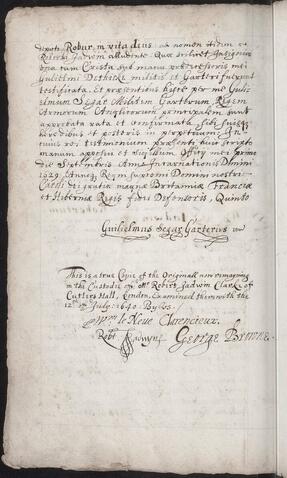 Robur in vita deus: ac nomen itidem
Roberti Jadwin alludente. Quæ
una cum Crista sub manu prædecessoris mei
Gulielmi Dethecke militis et Garterij fuerunt
testificata. Et præsentium per me Guli
elmum Segar Militem Garterum Regem
Armorum Anglicorum principalem sunt
rata et confirmata, sibi suisque
heredibus et posteris in perpetuum. In
cuius rei testimonium præsenti huic scripto
manum apposui et sigillum Officij mei
die Anno Incarnationis Domini
1629. Annoque Regni supremi Domini nostri
Caroli dei gratia magnæ Britanniæ Franciæ
et Hiberniæ Regis fidei Defensoris, Quinto
Guilielmus Segar Garterius
This is a true Copie of the Originall now remayning
in the Custodie of Mr. Robert Jadwin Clarke of
Cutlers Hall, London. Examined therewith the
12th of July: 1640. By vs.
Wm: le Neve Clarencieux.
Robt Jadwyn George Browne